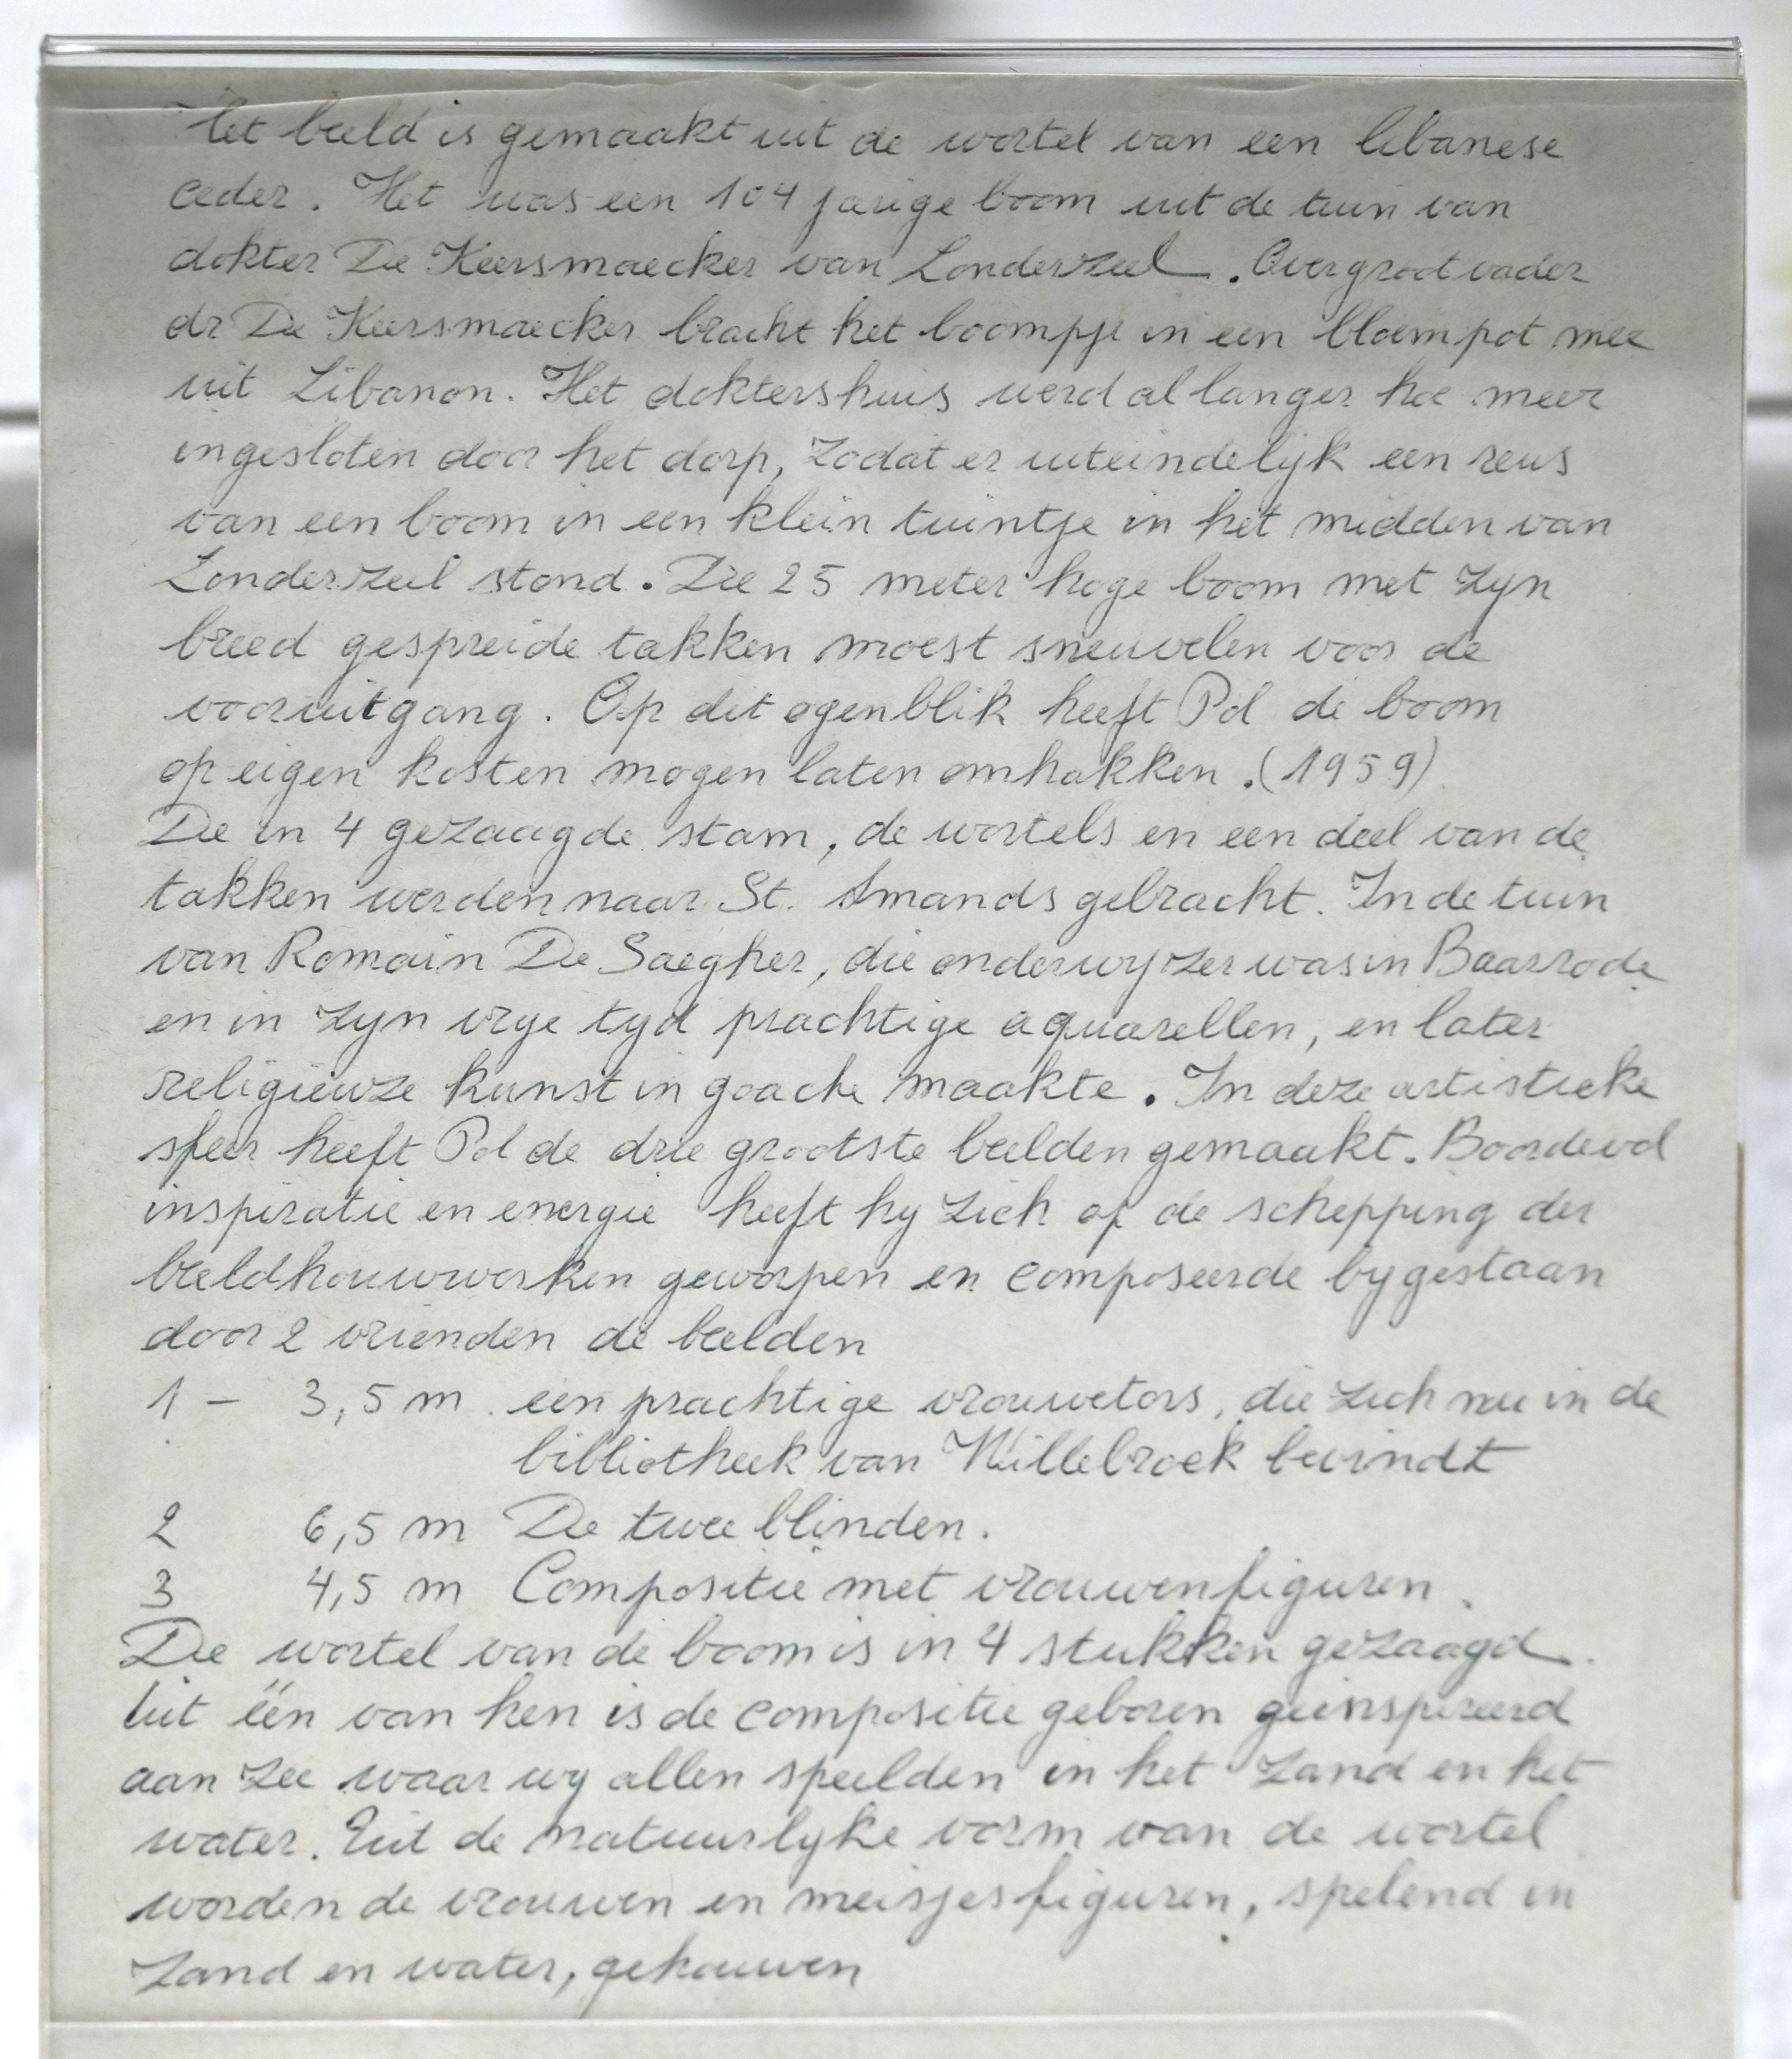 Het beeld is gemaakt uit de wortel van een libanese
ceder. Het was een 104 jarige boom uit de tuin van
dokter De Keersmaecker van Londerzeel. Overgrootvader
dr De Keersmaecker bracht het boompje in een bloempot mee
uit Libanon. Het doktershuis werd al langer hoe meer
ingesloten door het dorp, zodat er uiteindelijk een reus
van een boom in een klein tuintje in het midden van
Londerzeel stond. Die 25 meter hoge boom met zyn
breed gespreide takken moest sneuvelen voor de
vooruitgang. Op dit ogenblik heeft Pol de boom
op eigen kosten mogen laten omhakken. (1959)
De in 4 gezaagde stam, de wortels en een deel van de
takken werden naar St. Amands gebracht. In de tuin
van Romain De Saegher, die onderwyzer was in Baasrode
en in zyn vrye tyd prachtige aquarellen, en later
religieuze kunst in goache maakte. In deze artistieke
sfeer heeft Pol de drie grootste beelden gemaakt. Boordevol
inspiratie en energie heeft hy zich op de schepping der
beeldhouwwerken geworpen en composeerde bygestaan
door 2 vrienden de beelden
1 - 3,5 m. een prachtige vrouwetors, die zich nu in de
bibliotheek van Willebroek bevindt
2 6,5 m De twee blinden.
3 4,5 m Compositie met vrouwenfiguren.
De wortel van de boom is in 4 stukken gezaagd.
Uit ëën van hen is de compositie geboren geinspireerd
aan zee waar wy allen speelden in het zand en het
water. Uit de natuurlyke vorm van de wortel
worden de vrouwen en meisjesfiguren, spelend in
zand en water, gehouwen